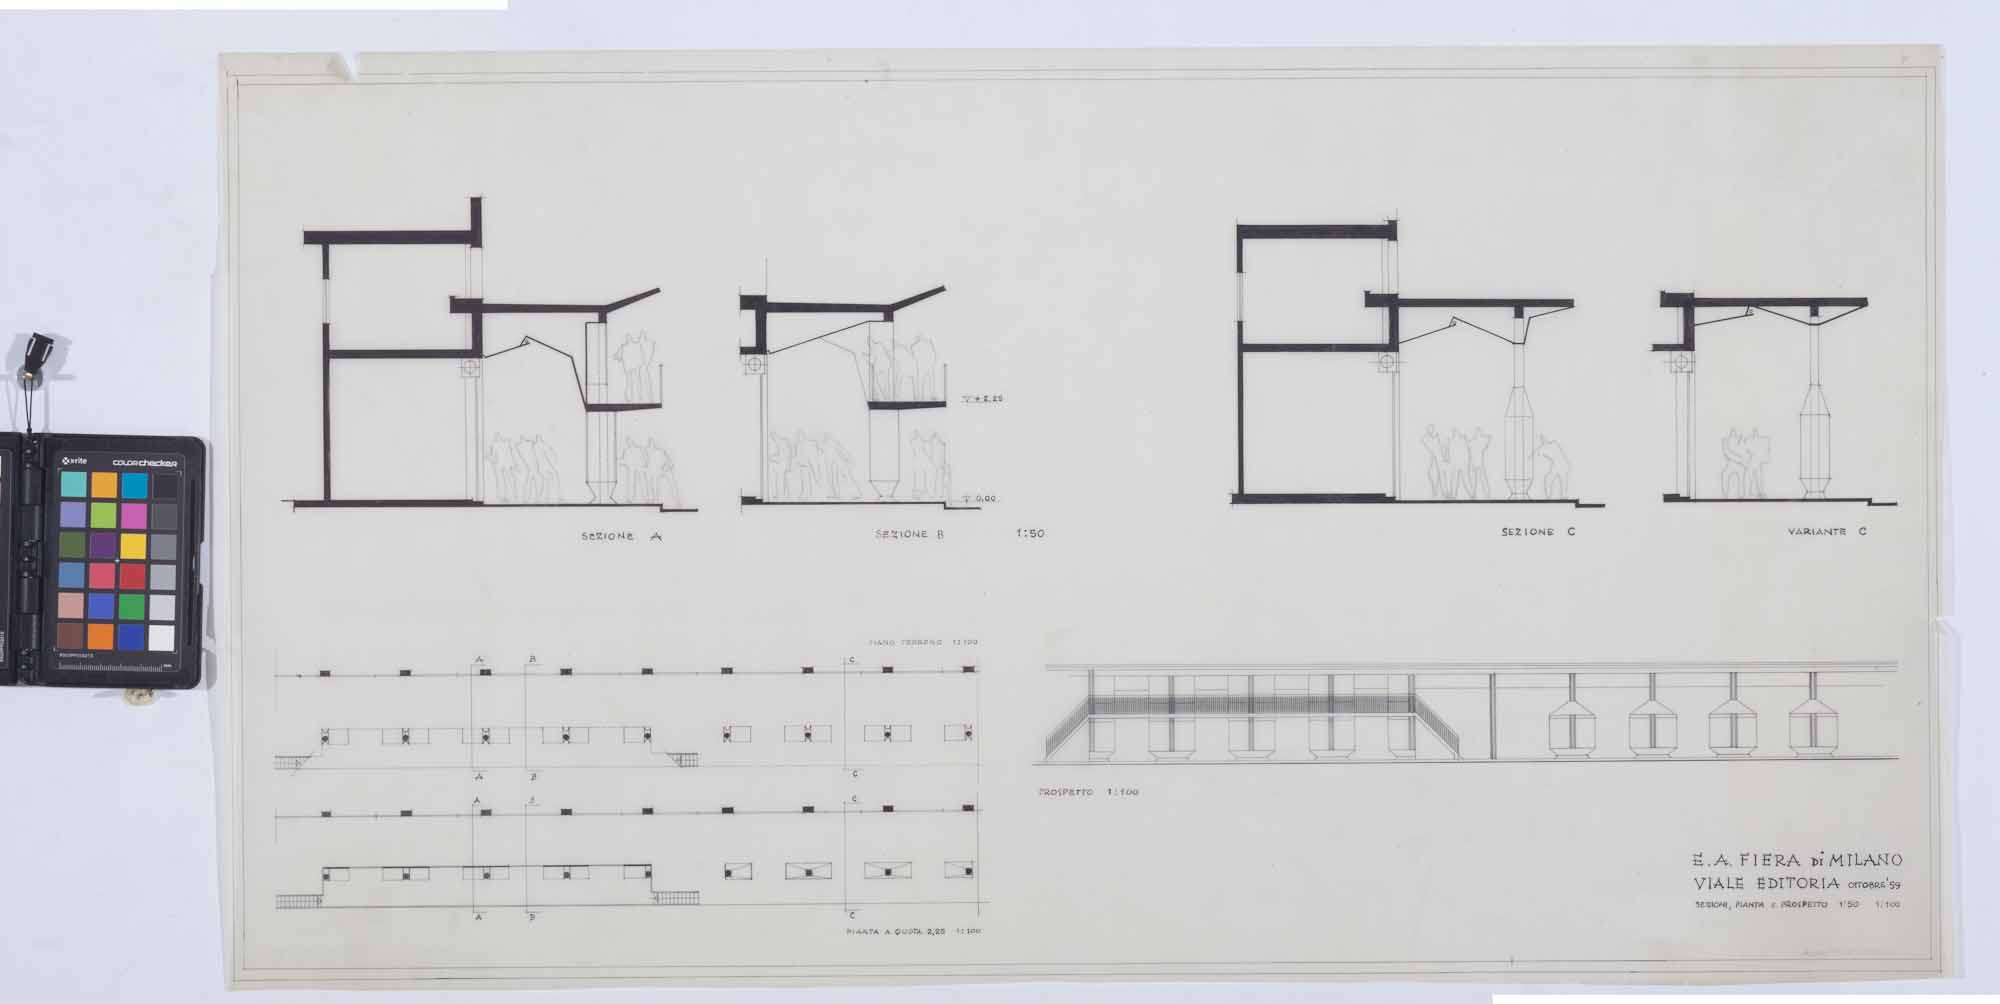 x-rite colorchecker
+2,25
0,00
SEZIONE A
SEZIONE B
1:50
SEZIONE C
VARIANTE C
PIANO TERRENO 1:100
A B C
A B C
PROSPETTO 1:100
A B C
A B C
PIANTA A QUOTA 2,25 1:100
E. A. FIERA di MILANO
VIALE EDITORIA OTTOBRE '59
SEZIONI, PIANTA E PROSPETTO 1:50 1:100